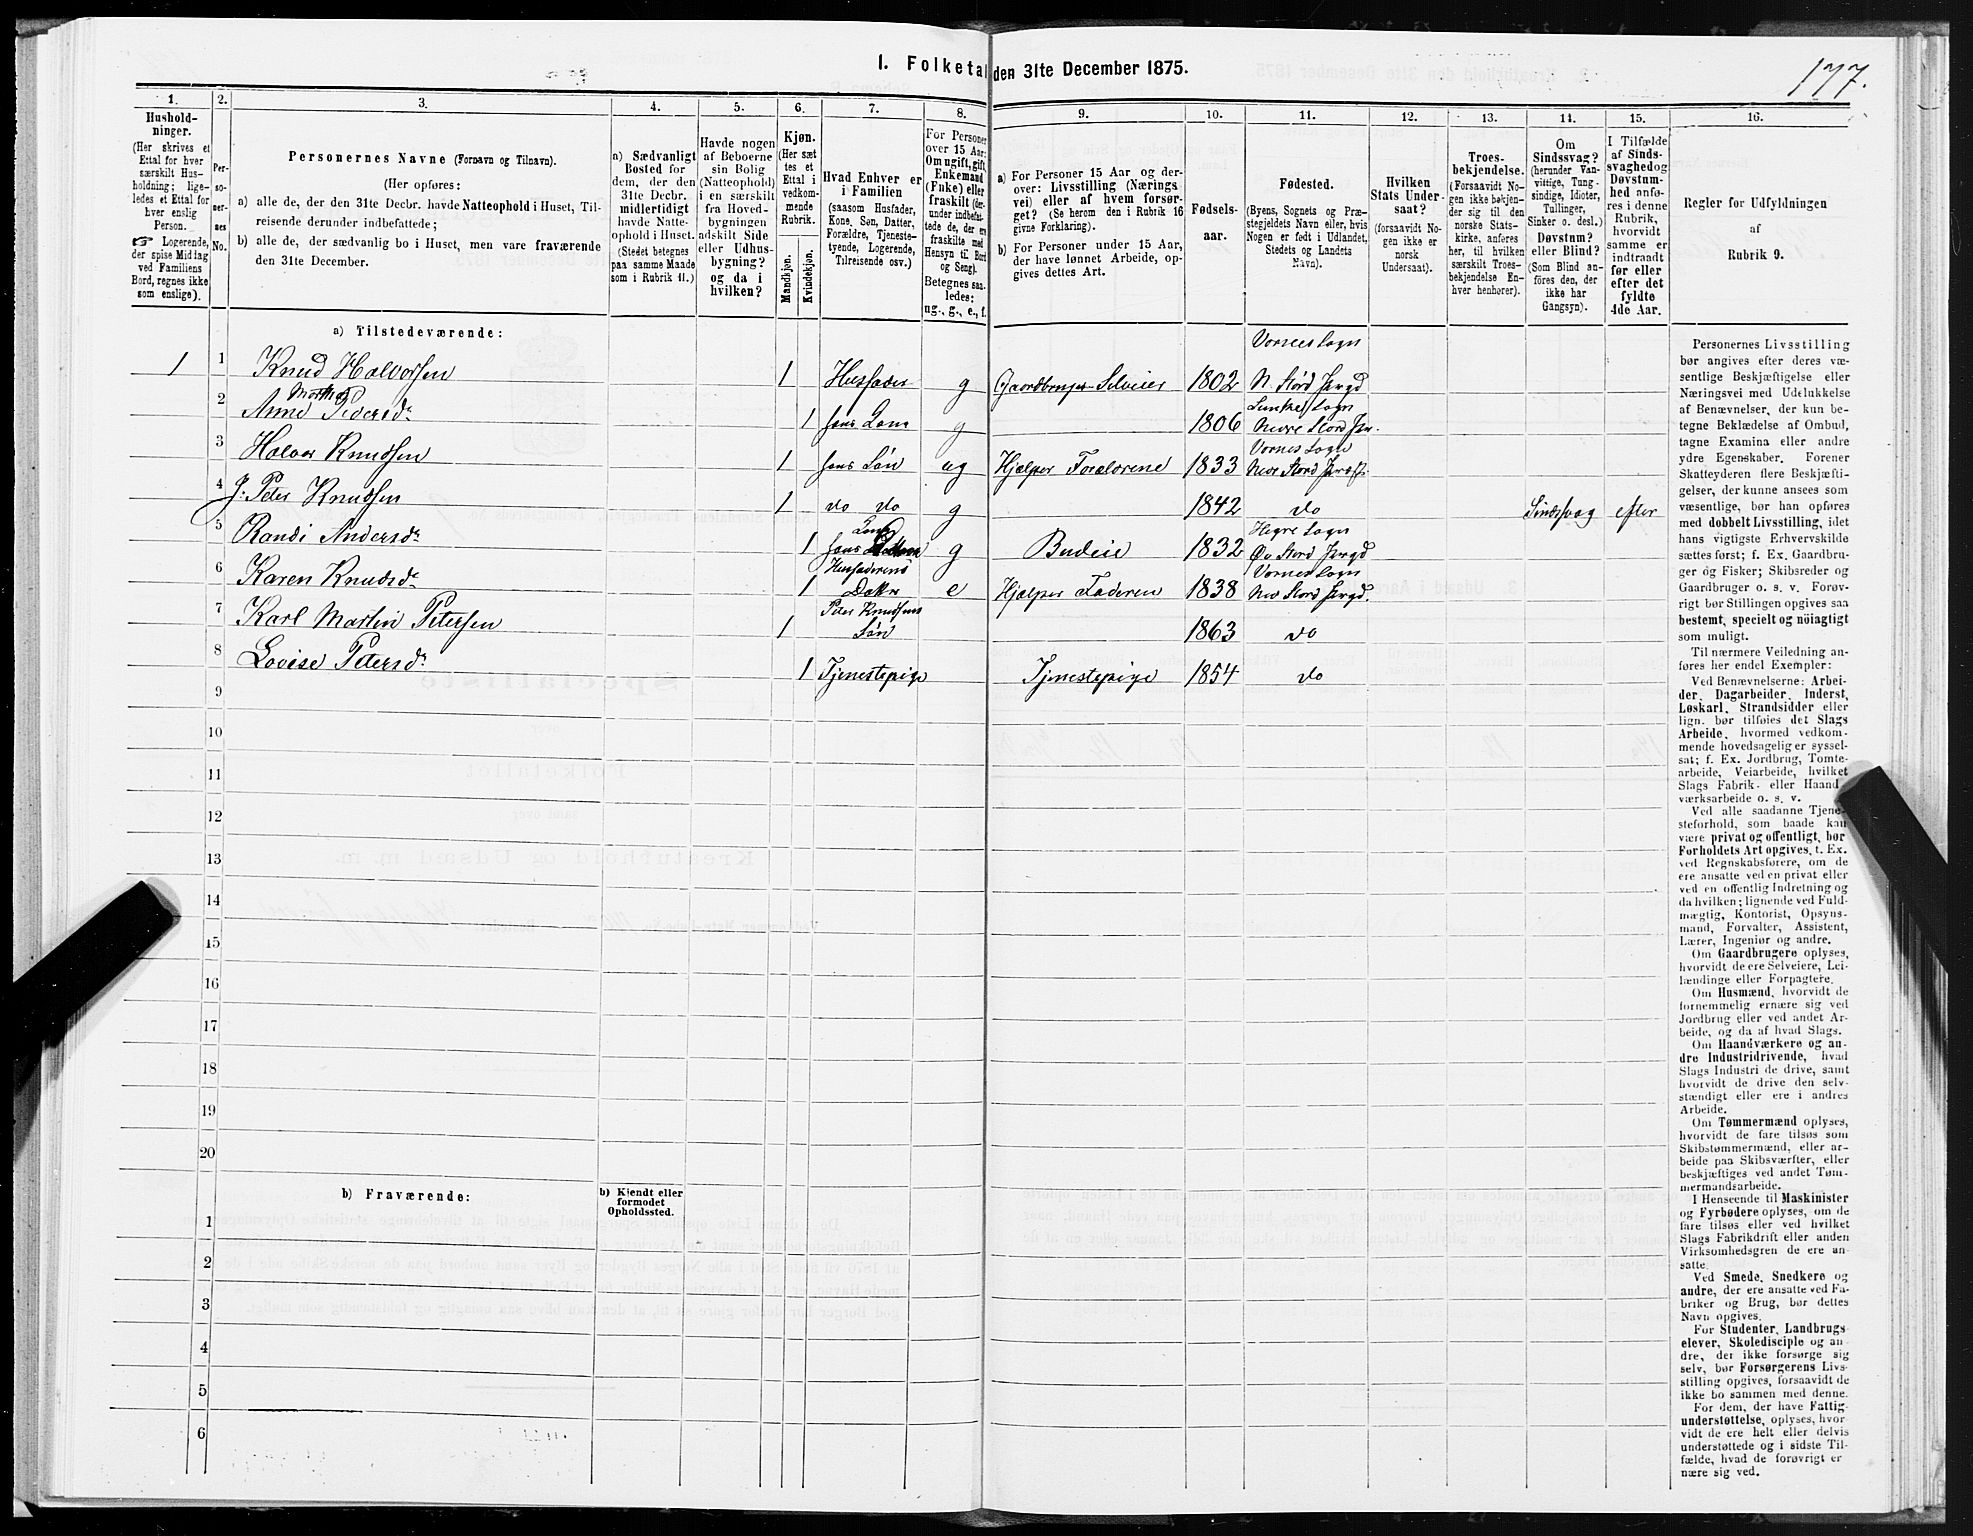 1. Folketal den 31te December 1875.
177.
1. 2. 3. 4. 5. 6. 7. 8. 9. 10. 11. 12. 13. 14. 15. 16.
Hushold-
ninger.
(Her skrives et
Ettal for hver
særskilt Hus-
holdning; lige-
ledes et Ettal for
hver enslig
Person.
☞ Logerende,
der spise Middag
ved Familiens
Bord, regnes ikke
som enslige).
Per-
so-
ner-
nes
No.
Personernes Navne (Fornavn og Tilnavn).
(Her opføres:
a) alle de, der den 31te Decbr. havde Natteophold i Huset, Til-
reisende derunder indbefattede;
b) alle de, der sædvanlig bo i Huset, men vare fraværende
den 31te December.
a) Sædvanligt
Bosted for
dem, der den
31te Decbr.
midlertidigt
havde Natte-
ophold i Huset.
(Stedet betegnes
paa samme Maade
som i Rubrik 11.)
Havde nogen
af Beboerne
sin Bolig
(Natteophold)
i en særskilt
fra Hoved-
bygningen
adskilt Side
eller Udhus-
bygning?
og da i
hvilken?
Kjøn.
(Her sæt-
tes et
Ettal i
vedkom-
mende
Rubrik.
Mandkjøn.
Kvindekjøn.
Hvad Enhver er
i Familien
(saasom Husfader,
Kone, Søn, Datter,
Forældre, Tjeneste-
tyende, Logerende,
Tilreisende osv.)
For Personer
over 15 Aar:
Om ugift, gift,
Enkemand
(Enke) eller
fraskilt (der-
under indbefat-
tede de, der ere
fraskilte med
Hensyn til Bord
og Seng).
Betegnes saa-
ledes:
ug., g., e., f.
a) For Personer 15 Aar og der-
over: Livsstilling (Nærings-
vei) eller af hvem forsør-
get? (Se herom den i Rubrik 16
givne Forklaring).
b) For Personer under 15 Aar,
der have lønnet Arbeide, op-
gives dettes Art.
Fødsels-
aar.
Fødested.
(Byens, Sognets og Præ-
stegjeldets Navn eller, hvis
Nogen er født i Udlandet,
Stedets og Landets
Navn).
Hvilken
Stats Under-
saat?
(forsaavidt No-
gen ikke er
norsk
Undersaat).
Troes-
bekjendelse.
(Forsaavidt No-
gen ikke bekjen-
der sig til den
norske Stats-
kirke, anføres
her, til hvilken
særskilt Troes-
bekjendelse En-
hver henhører).
Om
Sindssvag?
(herunder Van-
vittige, Tung-
sindige, Idioter,
Tullinger,
Sinker o. desl.)
Døvstum?
eller Blind?
(Som Blind an-
føres den, der
ikke har
Gangsyn).
I Tilfælde
af Sinds-
svaghed og
Døvstum-
hed anfø-
res i denne
Rubrik,
hvorvidt
samme er
indtraadt
før eller
efter det
fyldte
4de Aar.
Regler for Udfyldningen
af
Rubrik 9.
a) Tilstedeværende:
Vornes Sogn
1 1 Knud Halvorsen 1 Husfader g Gaardbruger Selveier 1802 N. Størd Prgd
Marth Sogn
2 Anne Pedersdr 1 hans Kona g 1806 Nedre Størd
Vornes Sogn
3 Halvor Knudsen 1 hans Søn ug Hjælper Forældrene 1833
4 J. Peter Knudsen 1 do do g 1842 do Sindssvag efter
Hegre Sogn
5 Randi Andersdr 1 hans Kona g Budeie 1832
Husfaderens Vornes Sogn
6 Karen Knudsdr 1 Datter e Hjælper Faderen 1838
Peter Knudsens
7 Karl Martin Petersen 1 Søn 1863 do
8 Lovise Petersdr 1 Tjenestepige Tjenestepige 1854 do
9
10
11
12
13
14
15
16
17
18
19
20
b) Fraværende:
b) Kjendt eller
formodet
Opholdssted.
1
2
3
4
5
6
Personernes Livsstilling
bør angives efter deres væ-
sentlige Beskjæftigelse eller
Næringsvei med Udelukkelse
af Benævnelser, der kun be-
tegne Beklædelse af Ombud,
tagne Examina eller andre
ydre Egenskaber. Forener
Skatteyderen flere Beskjæfti-
gelser, der kunne ansees som
væsentlige, bør han opføres
med dobbelt Livsstilling, idet
hans vigtigste Erhvervskilde
sættes først; f. Ex. Gaardbru-
ger og Fisker; Skibsreder og
Gaardbruger o. s. v. Forøv-
rigt bør Stillingen opgives saa
bestemt, specielt og nøiagtigt
som muligt.
Til nærmere Veiledning an-
føres her endel Exempler:
Ved Benævnelserne: Arbei-
der, Dagarbeider, Inderst,
Løskarl, Strandsidder eller
lign. bør tilføies det Slags
Arbeide, hvormed vedkom-
mende hovedsagelig er syssel-
sat; f. Ex. Jordbrug, Tomte-
arbeide, Veiarbeide, hvilket
Slags Fabrik- eller Haand-
værksarbeide o. s. v.
Ved alle saadanne Tjene-
steforhold, som baade kan
være privat og offentligt, bør
Forholdets Art opgives, t. Ex.
ved Regnskabsførere, om de
ere ansatte ved en privat eller
ved en offentlig Indretning og
da hvilken; lignende ved Fuld-
mægtig, Kontorist, Opsyns-
mand, Forvalter, Assistent,
Lærer, Ingeniør og andre.
Om Gaardbrugere oplyses,
hvorvidt de ere Selveiere, Lei-
lændinge eller Forpagtere.
Om Husmænd, hvorvidt de
fornemmelig ernære sig ved
Jordbrug eller ved andet Ar-
beide, og da af hvad Slags.
Om Haandværkere og an-
dre Industridrivende, hvad
Slags Industri de drive, samt
hvorvidt de drive den selv-
stændigt eller ere i andres
Arbeide.
Om Tømmermænd oplyses,
hvorvidt de fare tilsøs som
Skibstømmermænd, eller ar-
beide paa Skibsværfter, eller
beskjæftiges ved andet Tøm-
mermandsarbeide.
I Henseende til Maskinister
og Fyrbødere oplyses, om de
fare tilsøs eller ved hvilket
Slags Fabrikdrift eller anden
Virksomhedsgren de ere an-
satte.
Ved Smede, Snedkere og
andre, der ere ansatte ved Fa-
briker og Brug, bør dettes
Navn opgives.
For Studenter, Landbrugs-
elever, Skoledisciple og an-
dre, der ikke forsørge sig
selv, bør Forsørgerens Livs-
stilling opgives, forsaavidt de
ikke bo sammen med denne.
For dem, der have Fattig-
understøttelse, oplyses, hvor-
vidt de ere helt eller delvis
understøttede og i sidste Til-
fælde, hvad de forøvrigt er-
nære sig ved.